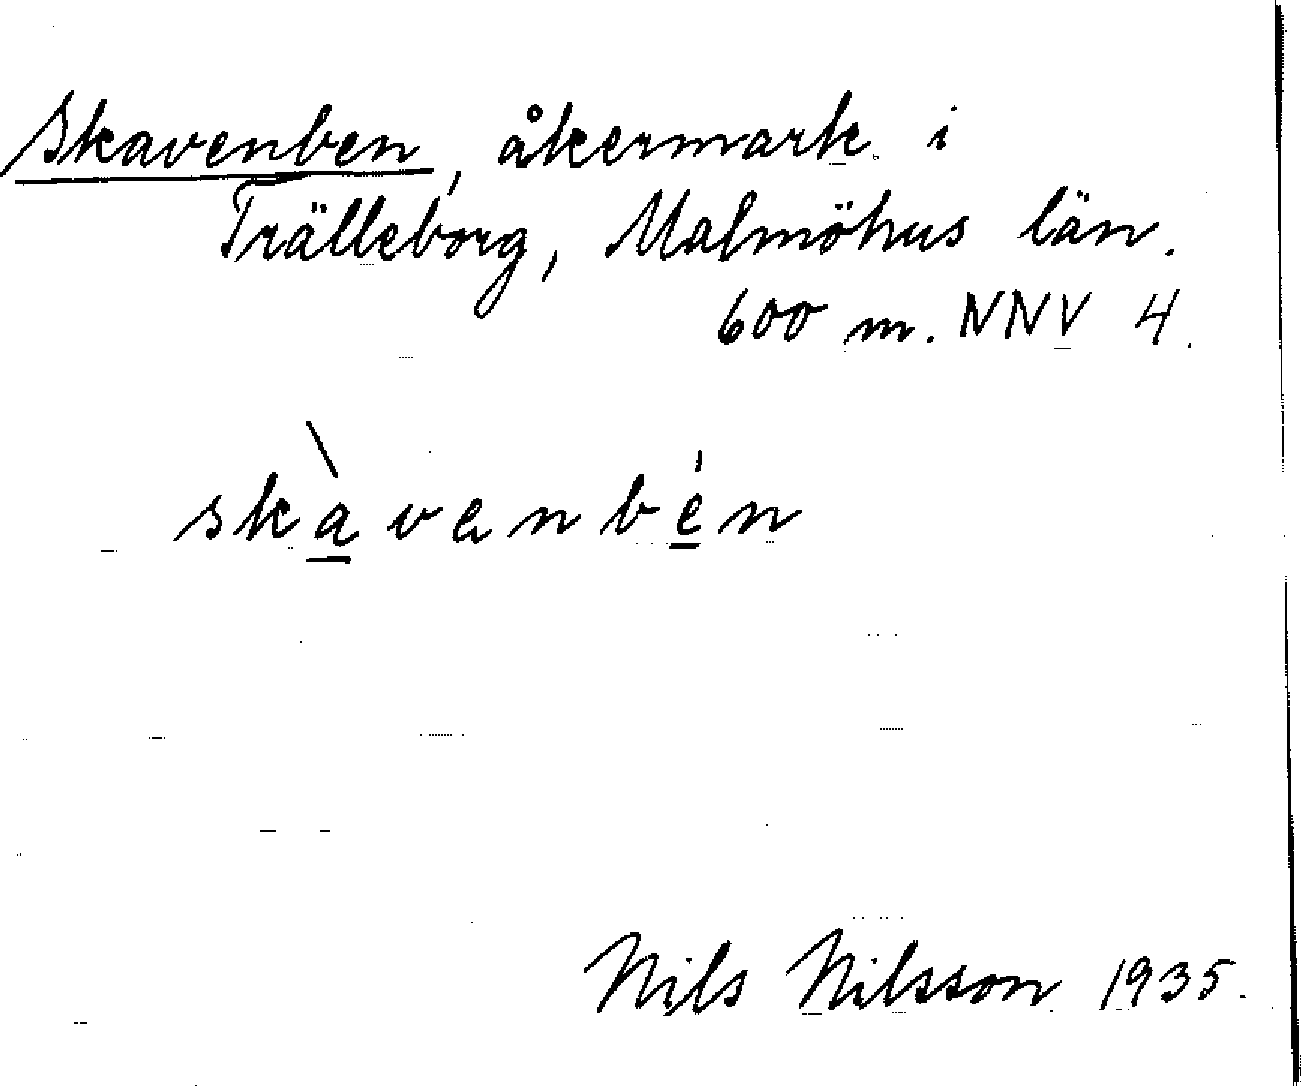 Skavenben, åkermark i
Trälleborg, Malmöhus län.
600 m. NNV 4.
skàvenbén
Nils Nilsson 1935.